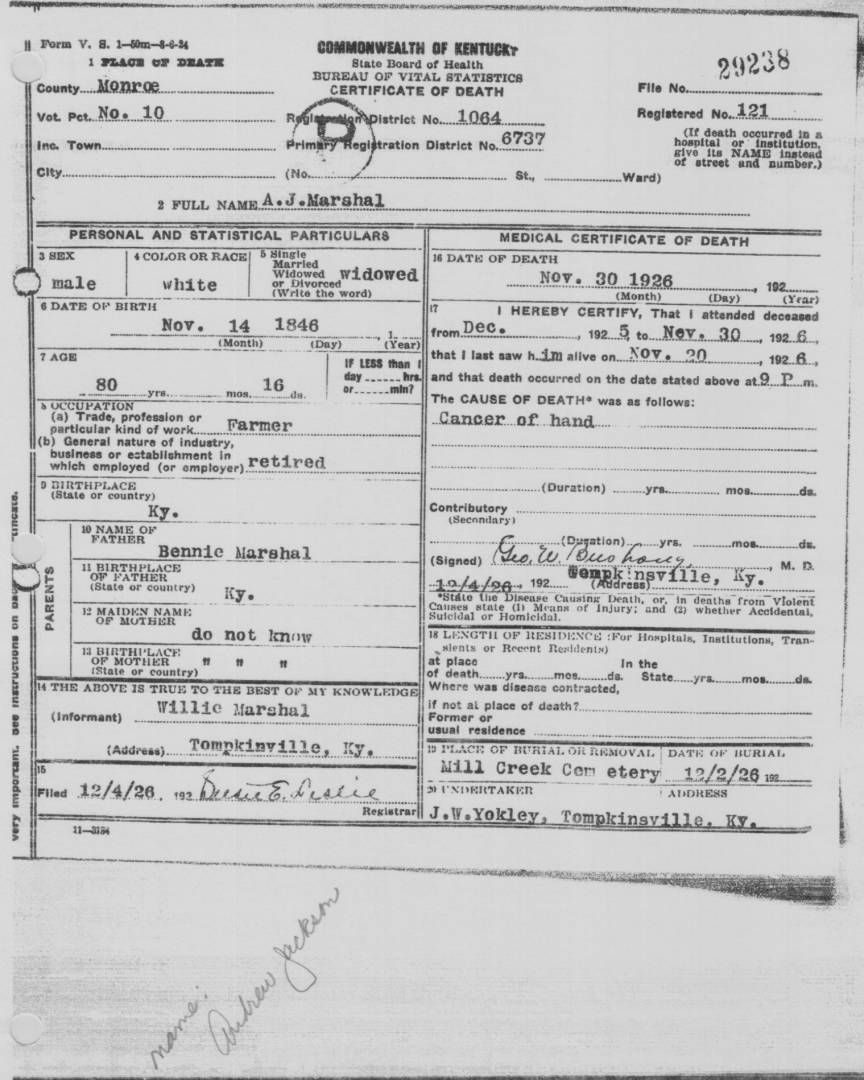 Form V. S. 1—50m—8-6-24
1 PLACE OF DEATH
COMMONWEALTH OF KENTUCKY
State Board of Health
BUREAU OF VITAL STATISTICS
CERTIFICATE OF DEATH
29238
County Monroe
File No.
Vot. Pct. No. 10
Registration District No. 1064
Registered No. 121
Inc. Town
Primary Registration District No. 6737
(If death occurred in a hospital or institution, give its NAME instead of street and number.)
City (No. St., Ward)
2 FULL NAME A.J.Marshal
PERSONAL AND STATISTICAL PARTICULARS
3 SEX
male
4 COLOR OR RACE
white
5 Single
Married
Widowed
or Divorced
(Write the word)
widowed
6 DATE OF BIRTH
Nov. 14 1846 , 1
(Month) (Day) (Year)
7 AGE
80 yrs. mos. 16 ds.
IF LESS than 1
day hrs.
or min?
8 OCCUPATION
(a) Trade, profession or
particular kind of work Farmer
(b) General nature of industry,
business or establishment in
which employed (or employer) retired
9 BIRTHPLACE
(State or country)
Ky.
PARENTS
10 NAME OF
FATHER
Bennie Marshal
11 BIRTHPLACE
OF FATHER
(State or country)
Ky.
12 MAIDEN NAME
OF MOTHER
do not know
13 BIRTHPLACE
OF MOTHER " " "
(State or country)
14 THE ABOVE IS TRUE TO THE BEST OF MY KNOWLEDGE
(Informant) Willie Marshal
(Address) Tompkinville, Ky.
15
Filed 12/4/26 , 192 E. Leslie
Registrar
11—3184
MEDICAL CERTIFICATE OF DEATH
16 DATE OF DEATH
Nov. 30 1926 , 192
(Month) (Day) (Year)
17 I HEREBY CERTIFY, That I attended deceased
from Dec. , 192 5 to Nov. 30 , 192 6,
that I last saw him alive on Nov. 20 , 192 6,
and that death occurred on the date stated above at 9 P m.
The CAUSE OF DEATH* was as follows:
Cancer of hand
(Duration) yrs. mos. ds.
Contributory
(Secondary)
(Duration) yrs. mos. ds.
(Signed) Geo. W. Bushong, M. D.
12/4/26 , 192 (Address) Tompkinsville, Ky.
*State the Disease Causing Death, or, in deaths from Violent
Causes state (1) Means of Injury; and (2) whether Accidental,
Suicidal or Homicidal.
18 LENGTH OF RESIDENCE (For Hospitals, Institutions, Tran-
sients or Recent Residents)
at place In the
of death yrs. mos. ds. State yrs. mos. ds.
Where was disease contracted,
if not at place of death?
Former or
usual residence
19 PLACE OF BURIAL OR REMOVAL
Mill Creek Cemetery
DATE OF BURIAL
12/2/26 192
20 UNDERTAKER ADDRESS
J.W.Yokley, Tompkinsville, Ky.
very important. See instructions on
name:
Andrew Jackson